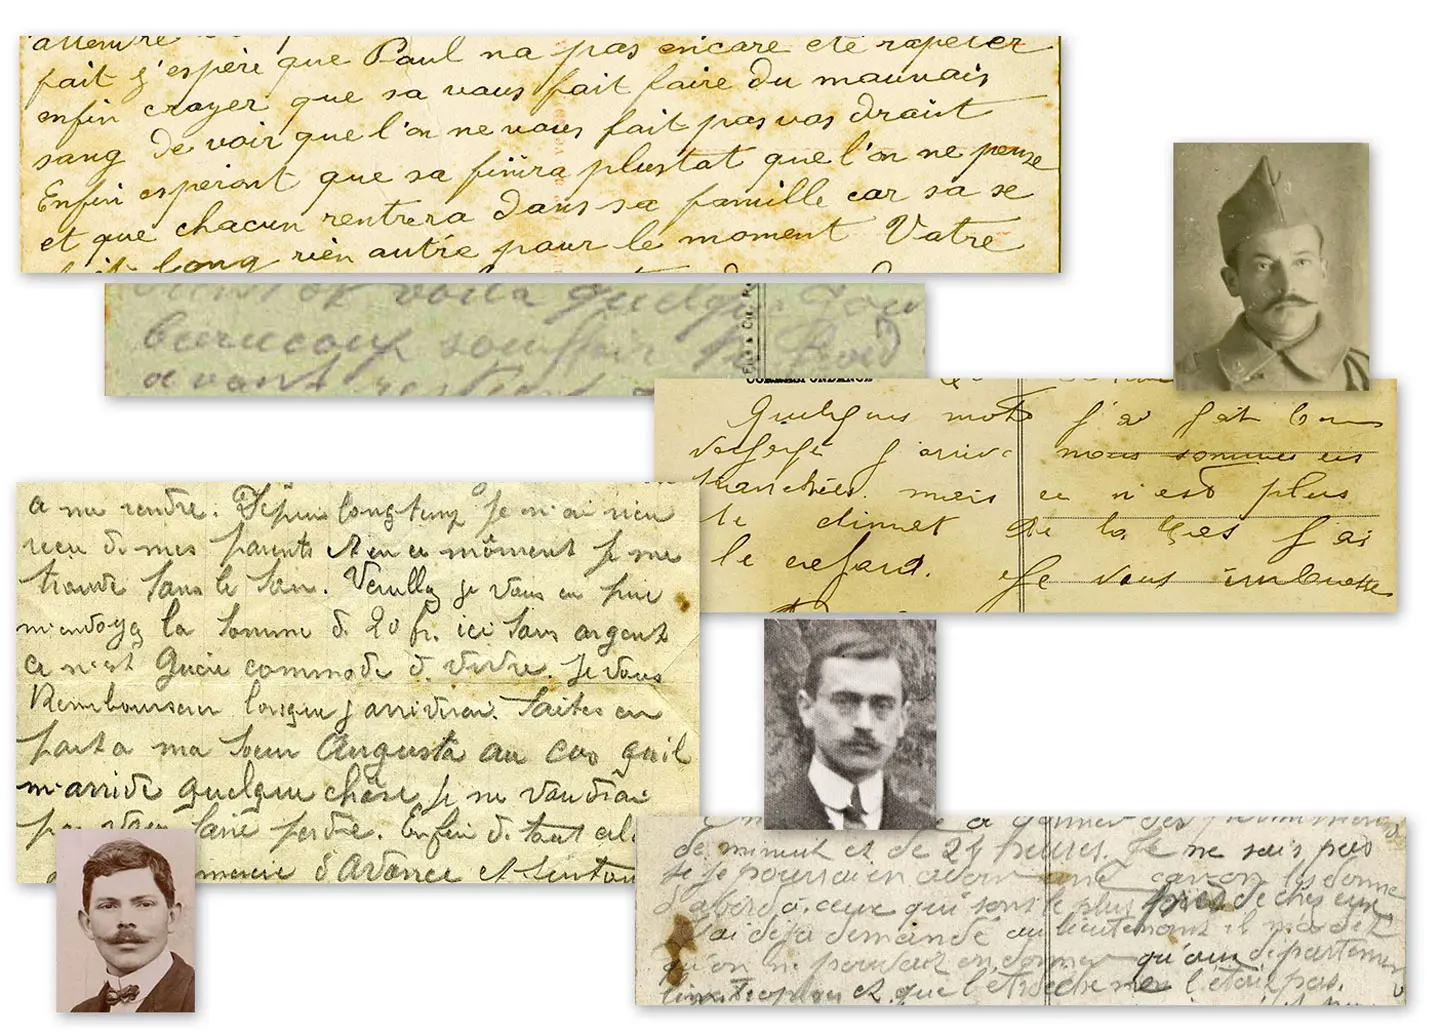 attendre
fait j'espère que Paul na pas encare eté rapeler
enfin crayer que sa vous fait faire du mauvais
sang de voir que l'on ne vous fait pas vos draint
Enfin esperont que sa finira plustat que l'on ne pense
et que chacun rentrera dans sa famille car sa se
fait long rien autre pour le moment Vatre
voila quelque jou
beaucoup souffrir froid
avant
CORRESPONDANCE
Quelques mots j'ai fait bon
voyage j'arrive nous sommes en
tranchées. mais ce n'est plus
le climat de la j'ai
le cafard. Je vous embrasse
a me rendre. Depuis longtemp je n'ai rien
recu de mes parents et en ce môment je me
trouve sans le sou. Veuillez je vous en prie
m'envoyez la somme d. 20 fr. ici sans argent
ce n'est guère commode d. vivre. Je vous
Rembourserai lorsque j'arriverai. Faites en
part a ma sœur Augusta au cas qu'il
m'arrive quelque chose je ne voudrai
pas vous faire perdre. Enfin d. tout cela
d'avance et
a donner des permissions
de minuit et de 24 heures. Je ne sais pas
se je pourrai en avoir une car on les donne
d'abord a ceux qui sont le plus près de chez eux
J'ai déja demandé au lieutenant il m'a dit
qu'on ne pouvait en donner qu'aux départemen
limitrophes et que l'Ardèche ne l'était pas.